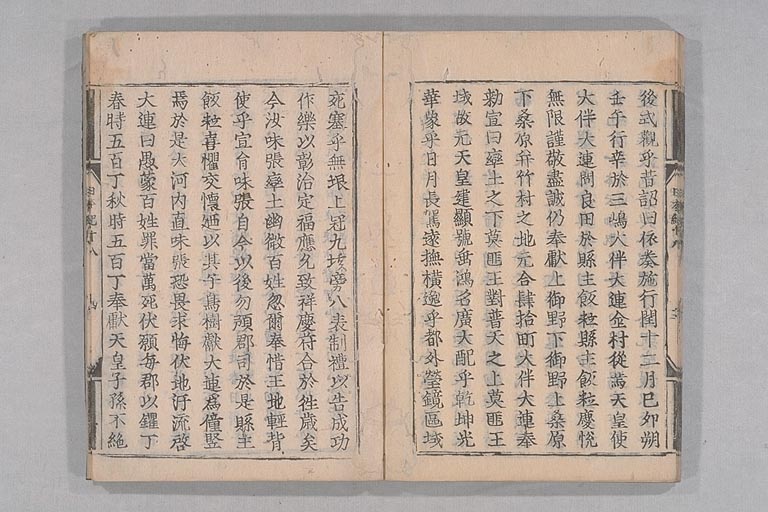 後式觀乎昔詔曰依奏施行閏十二月己卯朔
壬午行幸於三嶋大伴大連金村從焉天皇使
大伴大連問良田於縣主飯粒縣主飯粒慶悅
無限謹敬盡誠仍奉獻上御野下御野上桑原
下桑原幷竹村之地凡合肆拾町大伴大連奉
勅宣曰率土之下莫匪王封普天之上莫匪王
域故先天皇建顯號垂鴻名廣大配乎乾坤光
華象乎日月長駕遠撫橫逸乎都外瑩鏡區域
充塞乎無垠上冠九垓旁八表制禮以告成功
作樂以彰治定福應允致祥慶符合於往歲矣
今汝味張率土幽微百姓忽爾奉惜王地輕背
使乎宣旨味張自今以後勿預郡司於是縣主
飯粒喜懼交懷廼以其子鳥樹獻大連爲僮竪
焉於是大河內直味張恐畏求悔伏地汗流啓
大連曰愚蒙百姓罪當萬死伏願每郡以钁丁
春時五百丁秋時五百丁奉獻天皇子孫不絕